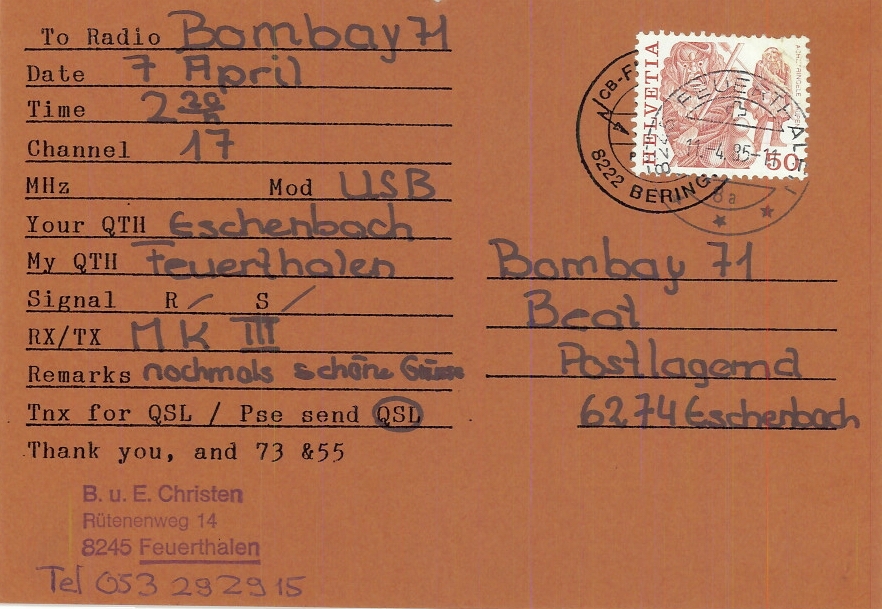 To Radio Bombay 71
Date 7 April
Time 2 20
Channel 17
MHz Mod USB
Your QTH Eschenbach
My QTH Feuerthalen
Signal R / S /
RX/TX MK III
Remarks nochmals schöne Grüsse
Tnx for QSL / Pse send QSL
Thank you, and 73 &55
B. u. E. Christen
Rütenenweg 14
8245 Feuerthalen
Tel 053 292915
HELVETIA
50
FEUERTHALEN
11.-4.85-11
8222 BERING
Bombay 71
Beat
Postlagernd
6274 Eschenbach